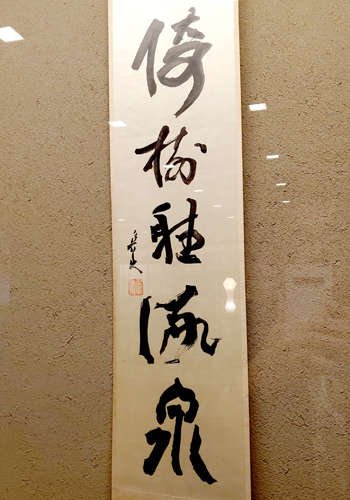 倚樹聴流泉